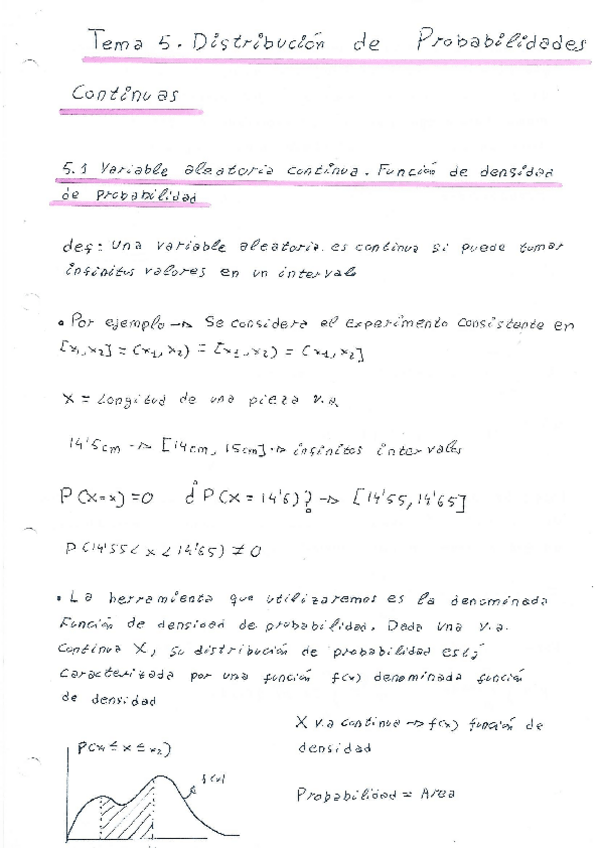 Tema 5. Distribución de Probabilidades
Continuas
5.1 Variable aleatoria continua. Función de densidad
de probabilidad
def: Una variable aleatoria es continua si puede tomar
infinitos valores en un intervalo
• Por ejemplo → Se considera el experimento consistente en
[x₁,x₂] = (x₁,x₂) = [x₁,x₂) = (x₁,x₂]
X = Longitud de una pieza v.a
14'5cm → [14cm, 15cm] → infinitos intervalos
P(X=x)=0 ¿P(X=14'6)? → [14'55, 14'65]
P(14'55<x<14'65) ≠ 0
• La herramienta que utilizaremos es la denominada
Función de densidad de probabilidad. Dada una v.a.
Continua X, su distribución de probabilidad está
caracterizada por una función f(x) denominada función
de densidad
X v.a continua → f(x) función de
densidad
Probabilidad = Area
P(x₁ ≤ x ≤ x₂)
f(x)